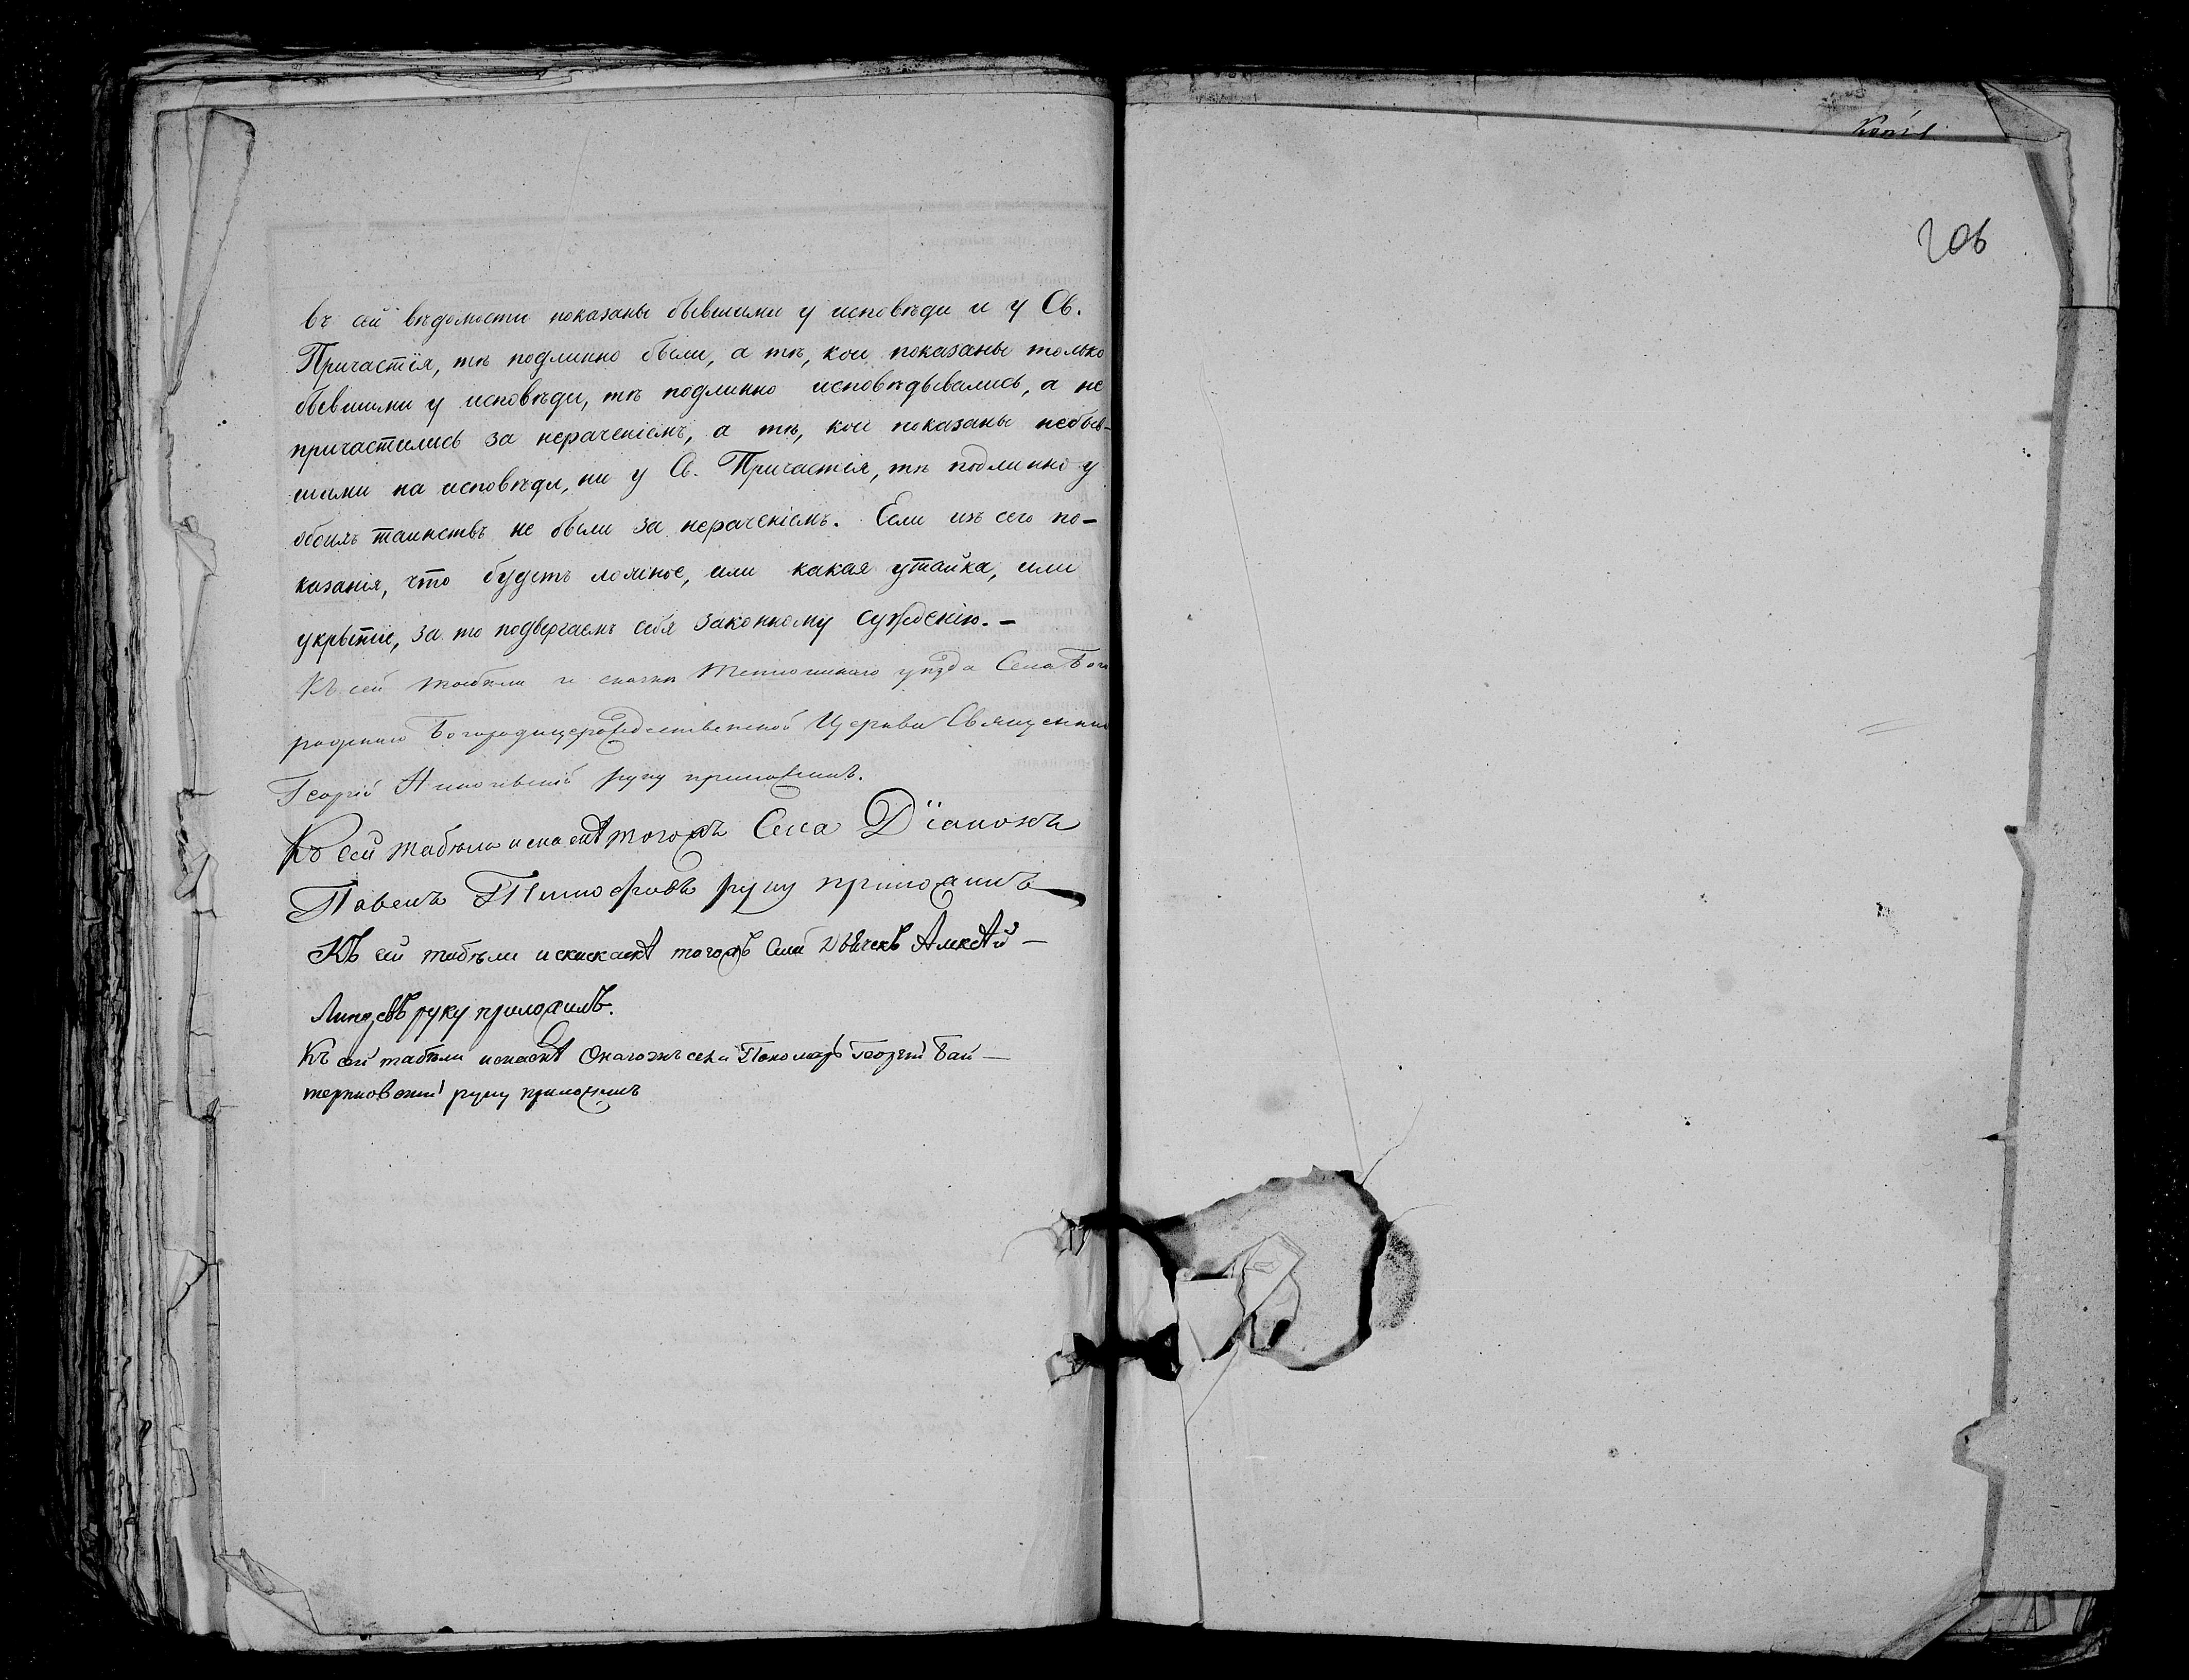 въ сей вѣдомости показаны бывшими у исповѣди и у Св.
Причастія, тѣ подлинно были, а тѣ, кои показаны только
бывшими у исповѣди, тѣ подлинно исповѣдывались, а не
причастились за нераченіемъ, а тѣ, кои показаны небыв-
шими на исповѣди, ни у Св. Причастія, тѣ подлинно у
обоихъ таинствъ не были за нераченіемъ. Если изъ сего по-
казанія, что будетъ ложное, или какая утайка, или
укрытіе, за то подвергаемъ себя законному сужденію. –
Къ сей табели и сказкѣ Тетюшскаго уѣзда Села Бого
родскаго Богородицерождественской Церкви Священникъ
Георгій руку приложилъ.
Къ сей табели и сказкѣ тогожъ Села Діаконъ
Павелъ Тимофѣевъ руку приложилъ
Къ сей табѣли и скаскѣ тогожъ Села Дьячекъ Алексѣй –
руку приложилъ.
Къ сей табѣли и скаскѣ Онагожъ села Пономарь Георгій Бай –
теряковскій руку приложилъ
Копія
206